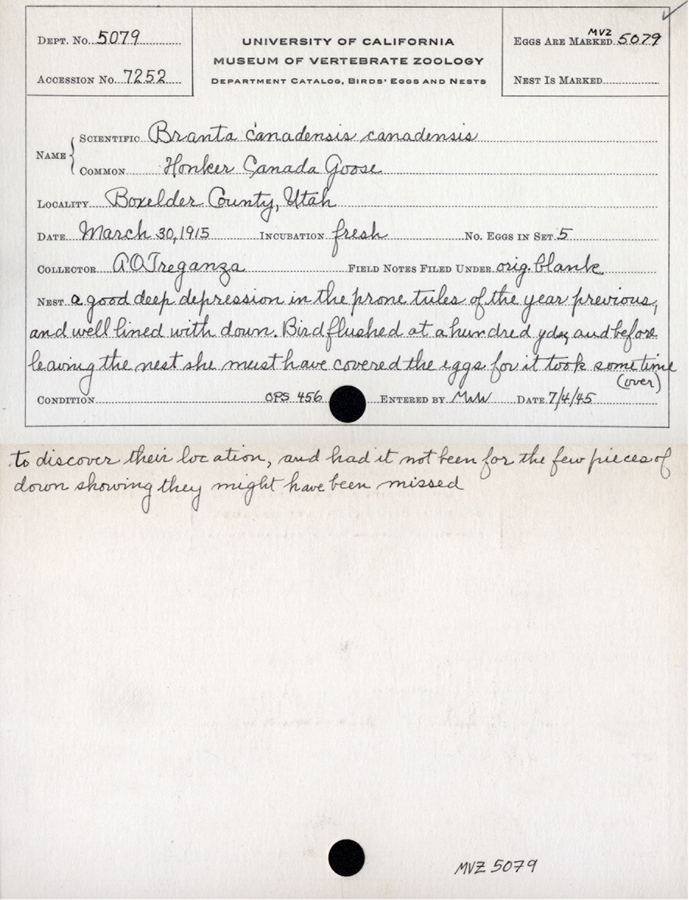 Dept. No. 5079
Accession No. 7252
UNIVERSITY OF CALIFORNIA
MUSEUM OF VERTEBRATE ZOOLOGY
Department Catalog, Birds' Eggs and Nests
MVZ
Eggs Are Marked 5079
Nest Is Marked
Name
Scientific Branta canadensis canadensis
Common Honker Canada Goose
Locality Boxelder County, Utah
Date March 30, 1915 Incubation fresh No. Eggs in Set 5
Collector AOTreganza Field Notes Filed Under orig. blank
Nest a good deep depression in the prone tules of the year previous,
and well lined with down. Bird flushed at a hundred yds, and before
leaving the nest she must have covered the eggs for it took some time
(over)
Condition OPS 456 Entered by MWW Date 7/4/45
to discover their location, and had it not been for the few pieces of
down showing they might have been missed
MVZ 5079